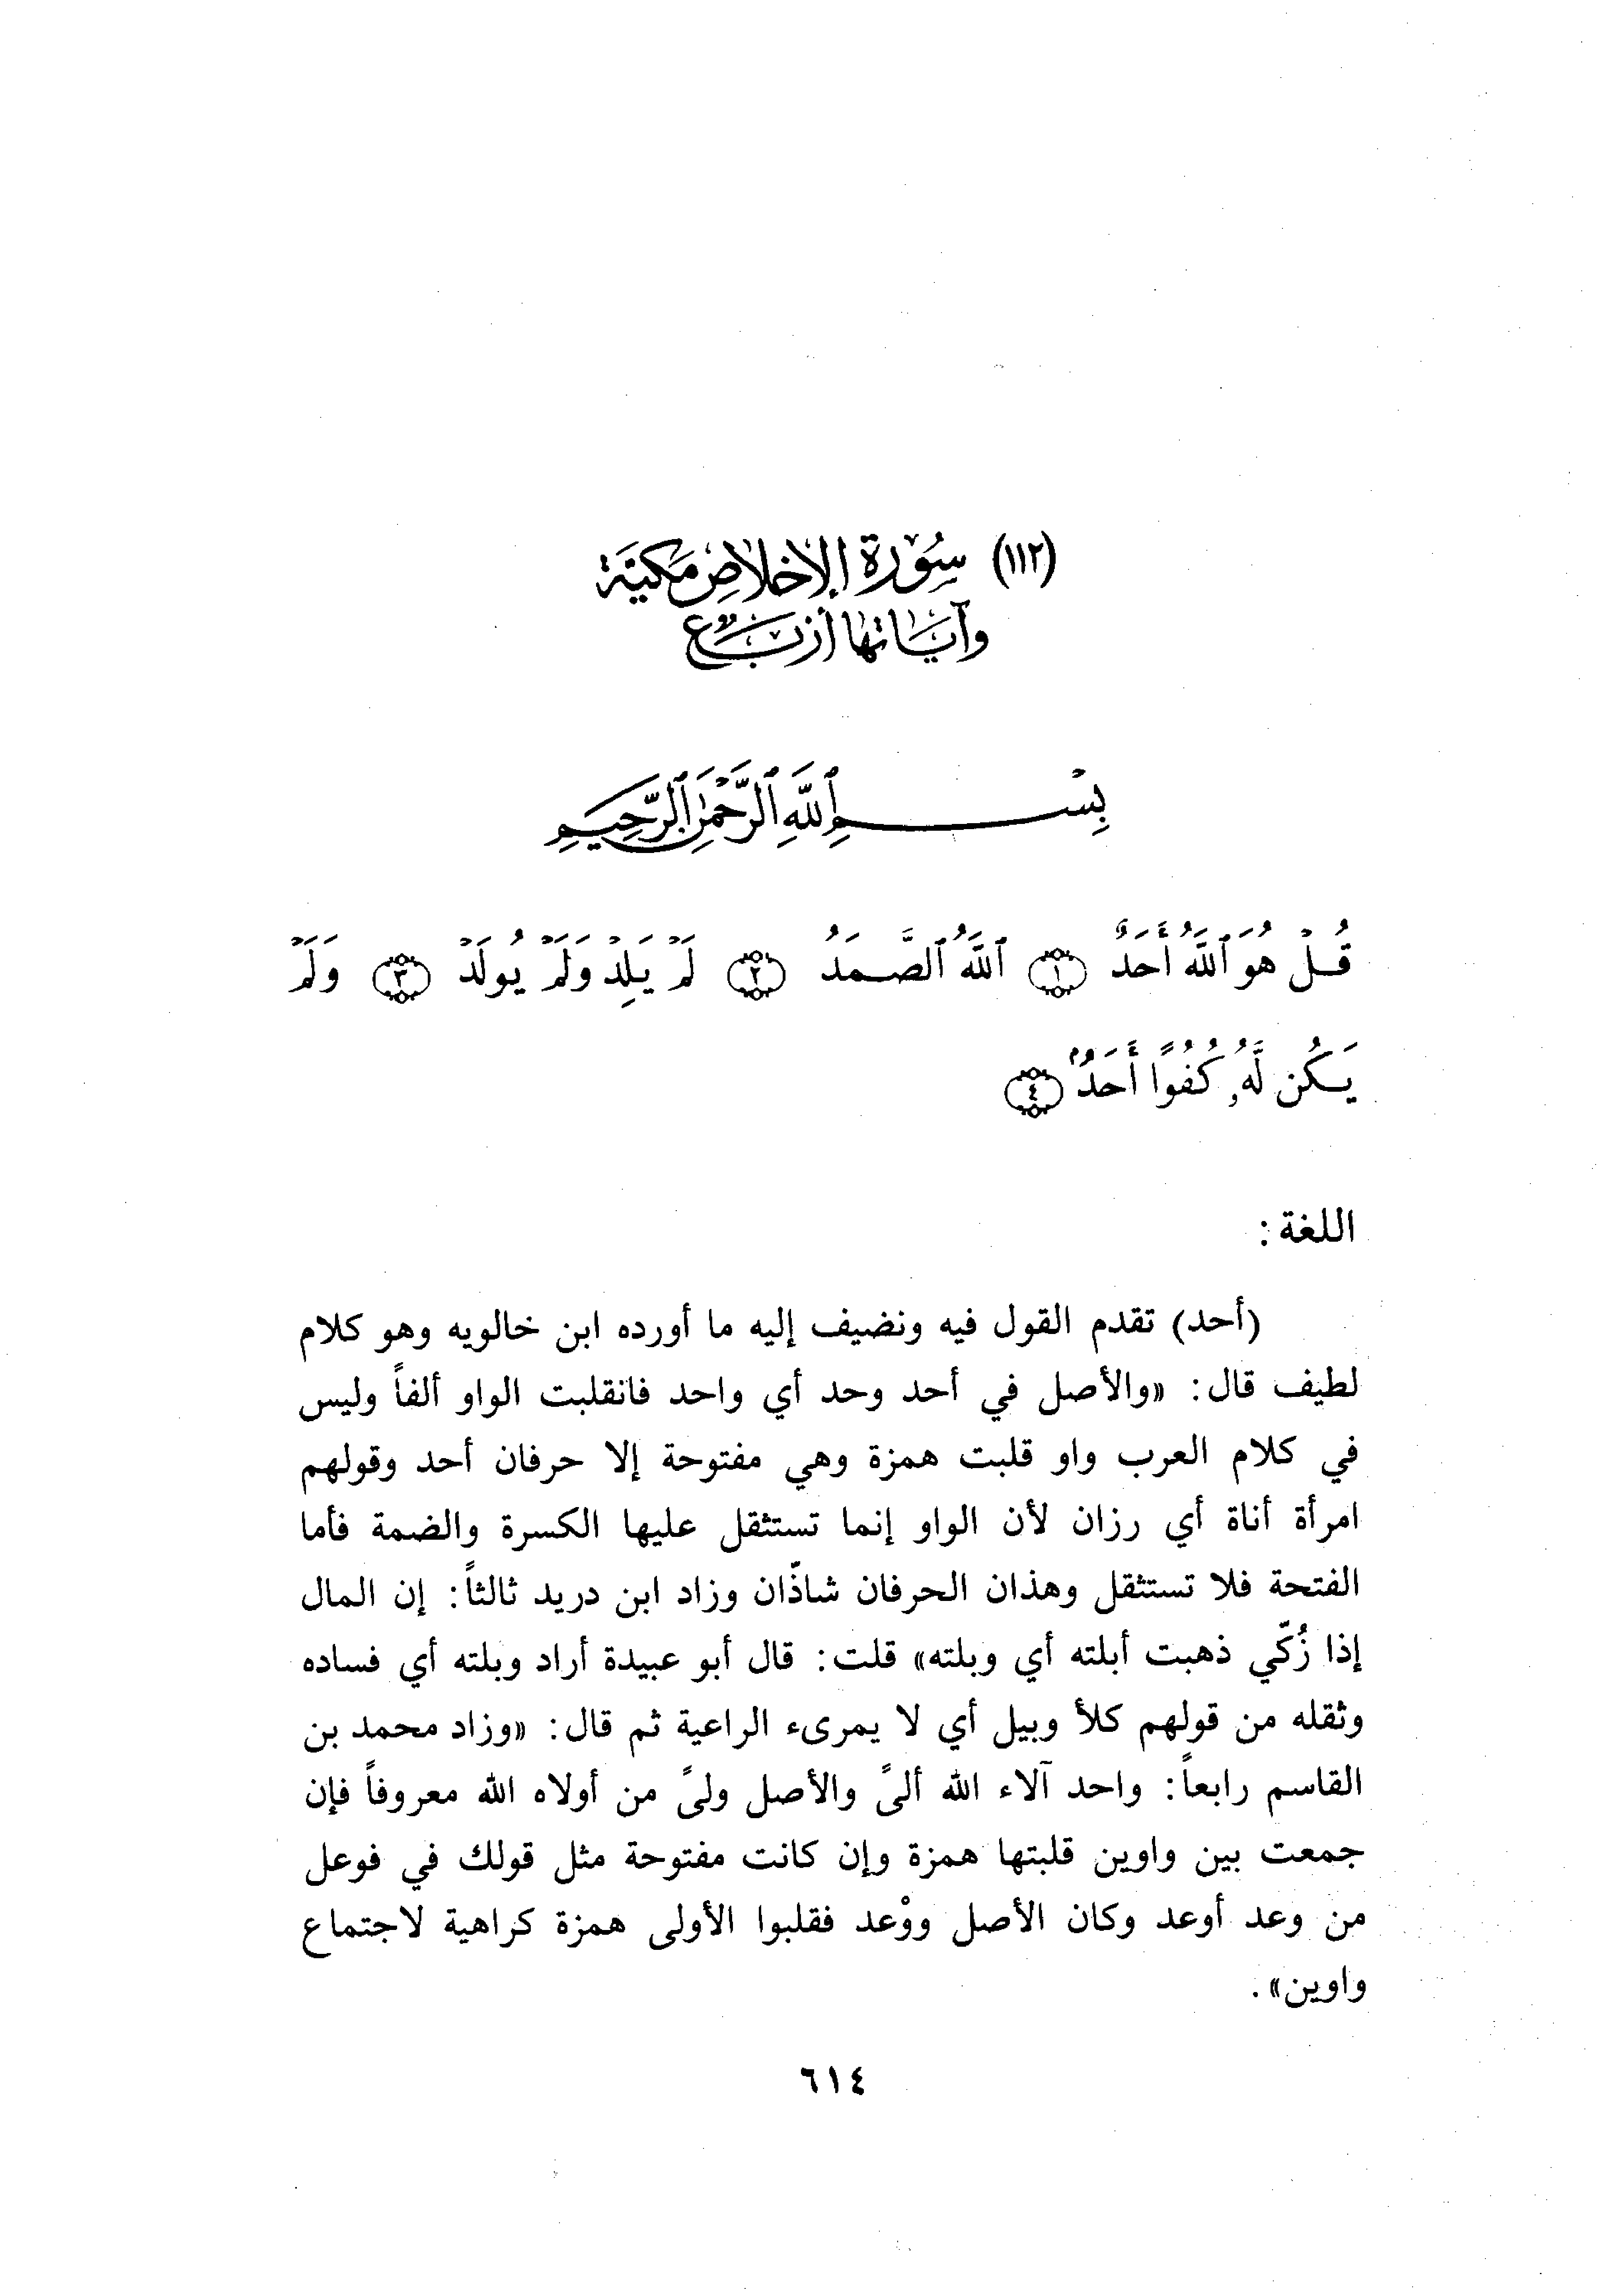 (١١٢) سُورَة الإخلاص مكيَّة
وآيَاتها أربَع
بِسْمِ ٱللَّهِ ٱلرَّحْمَٰنِ ٱلرَّحِيمِ
قُلْ هُوَ ٱللَّهُ أَحَدٌ ١ ٱللَّهُ ٱلصَّمَدُ ٢ لَمْ يَلِدْ وَلَمْ يُولَدْ ٣ وَلَمْ
يَكُن لَّهُۥ كُفُوًا أَحَدٌۢ ٤
اللغة :
(أحد) تقدم القول فيه ونضيف إليه ما أورده ابن خالويه وهو كلام
لطيف قال: «والأصل في أحد وحد أي واحد فانقلبت الواو ألفاً وليس
في كلام العرب واو قلبت همزة وهي مفتوحة إلا حرفان أحد وقولهم
امرأة أناة أي رزان لأن الواو إنما تستثقل عليها الكسرة والضمة فأما
الفتحة فلا تستثقل وهذان الحرفان شاذّان وزاد ابن دريد ثالثاً: إن المال
إذا زُكّي ذهبت أبلته أي وبلته» قلت: قال أبو عبيدة أراد وبلته أي فساده
وثقله من قولهم كلأ وبيل أي لا يمرىء الراعية ثم قال: «وزاد محمد بن
القاسم رابعاً: واحد آلاء الله ألىً والأصل ولىً من أولاه الله معروفاً فإن
جمعت بين واوين قلبتها همزة وإن كانت مفتوحة مثل قولك في فوعل
من وعد أوعد وكان الأصل ووْعد فقلبوا الأولى همزة كراهية لاجتماع
واوين».
٦١٤